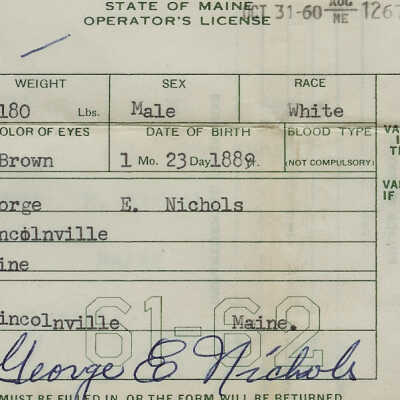 STATE OF MAINE
OPERATOR'S LICENSE
OCT 31-60 AUG ME 1267
WEIGHT SEX RACE
180 Lbs. Male White
OLOR OF EYES DATE OF BIRTH BLOOD TYPE
Brown 1 Mo. 23 Day 1889. (NOT COMPULSORY)
VA
I
TH
VA
IF
orge E. Nichols
ncolnville
ine
61-62
incolnville Maine.
George E Nichols
MUST BE FILLED IN OR THE FORM WILL BE RETURNED